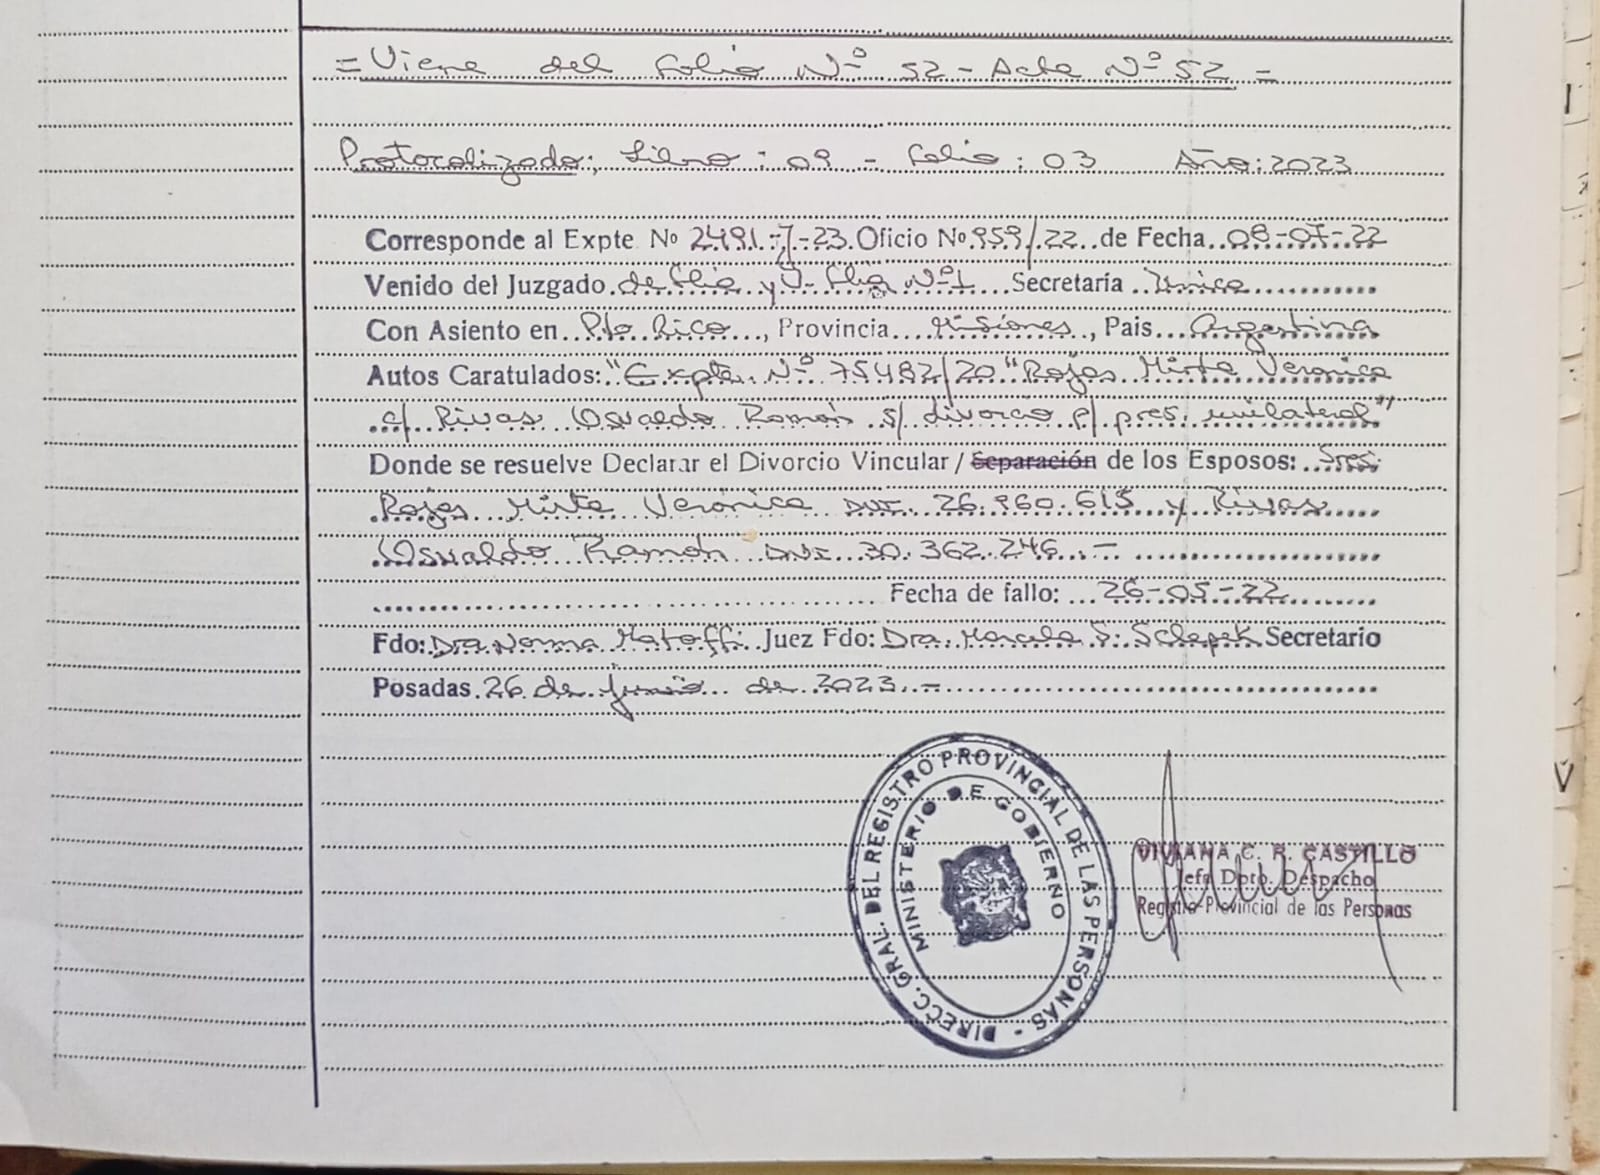 = Viene del Folio Nº 52 - Acta Nº 52 =
Protocolizado: Libro: 09 - Folio: 03 Año: 2023
Corresponde al Expte Nº 2491-J-23. Oficio Nº 959/22 de Fecha 08-07-22
Venido del Juzgado de Flia y V. Flia Nº 1 Secretaría Única
Con Asiento en Pto. Rico, Provincia Misiones, Pais Argentina
Autos Caratulados: "Expte. Nº 75482/20 "Rojas Mirta Verónica
c/ Rivas Osvaldo Ramón s/ divorcio p/ pres. unilateral"
Donde se resuelve Declarar el Divorcio Vincular / Separación de los Esposos: Sres.
Rojas Mirta Verónica DNI 26.960.615 y Rivas
Osvaldo Ramón DNI 30.362.246.-
Fecha de fallo: 26-05-22
Fdo: Dra. Norma Matoffi Juez Fdo: Dra. Marcela S. Sclepek Secretario
Posadas 26 de junio de 2023.-
DIRECC. GRAL. DEL REGISTRO PROVINCIAL DE LAS PERSONAS -
MINISTERIO DE GOBIERNO
VIVIANA C. R. CASTILLO
Jefa Dpto. Despacho
Registro Provincial de las Personas